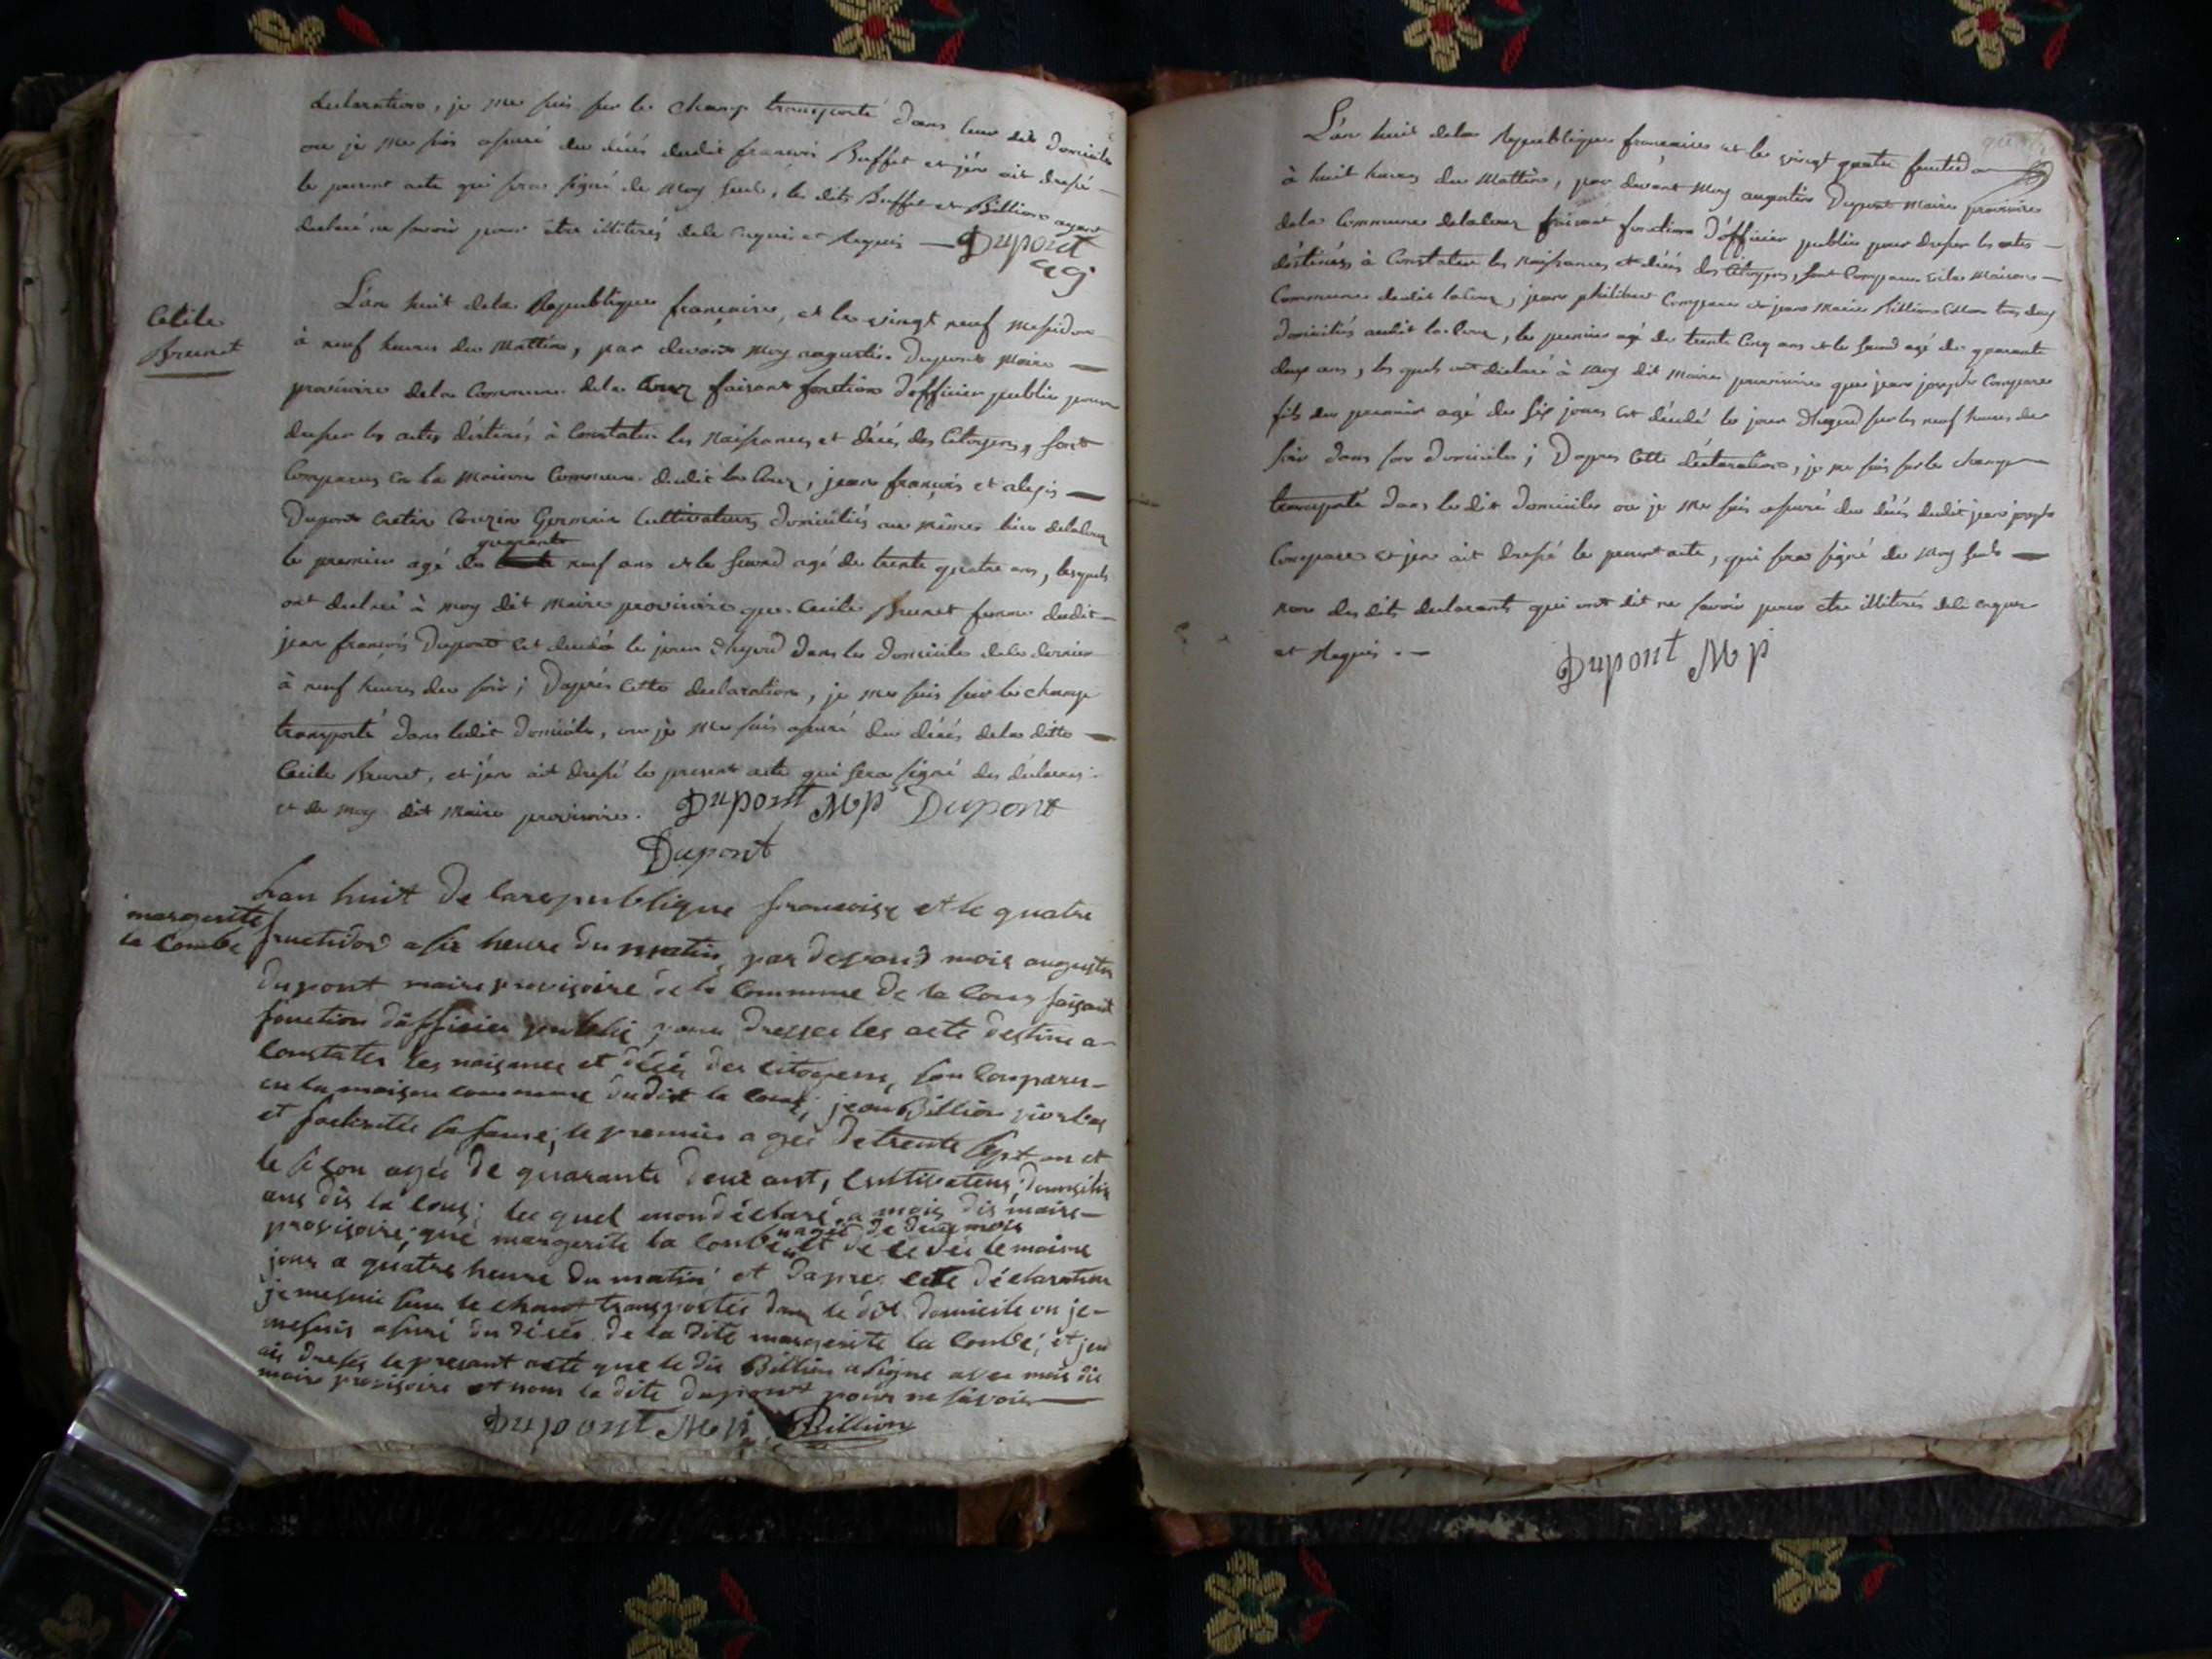 declaration, je me suis sur le champ transporté dans leur dit domicile
ou je me suis assuré du décés dudit françois Buffet et j'en ait dressé
le present acte qui sera signé de moy seul, les dits Buffet et Billion ayant
declaré ne savoir pour etre illiterés de le enquis et requis — Dupont
ag
Célile
Brunet
L'an huit dela Republique française, et le vingt neuf messidor
à neuf heures du mattin, par devant moy augustin Dupont maire —
provisoire dela Commune dela Cour faisant fonction d'officier public pour
dresser les actes déstinés à Constater les Naissances et décés des Citoyens, sont
Comparus en la maison Commune dudit la Cour, jean françois et alexis —
Dupont Cretin Couzin Germain Cultivateurs domiciliés au mêmes lieu delaCour
quarante
le premier agé de neuf ans et le second agé de trente quatre ans, lesquels
ont declaré à moy dit maire provisoire que Cecile Brunet femme dudit
jean françois Dupont est decedé le jour d'hyerd dans le domicile dele dernier
à neuf heures du soir ; D'aprés Cette declaration, je me suis sur le champ
transporté dans ledit domicile, ou je me suis assuré du décés dela ditte —
Cecile Brunet, et j'en ait dressé le present acte qui sera signé des déclarans
et de moy dit maire provisoire. Dupont Mp Dupont
Dupont
margerite
la Combe
Lan huit de larepublique francoise et le quatre
fructidor a six heure du matin, par devant mois augustin
dupont maire provisoire de la Commune de la Cour faisant
fonction dofficier public pour dresser les acte destine a
Constater les naisance et décés des citoyens, son Comparu
en la maison commune dudit la Cour, jean Billion
et sa fame; le premier agée de trente sept an et
le segon agée de quarante deux ant, Cultivateur domicilie
au dis la Cour; les quel mon déclaré a mois dis maire
agée de deux mois
provisoire, que margerite la Combe et decedée le maime
jour a quatre heure du matin et dapres cete déclaration
je me suis sur le chant transportés dans le dit domicile ou je
me suis asuré du décés de la dite margerite la Combe, et jen
ais dressés le present acte que le dis Billion a signe avec mois dis
maire provisoire et nom la dite dupont pour ne savoir
Dupont Mp Billion
L'an huit dela Republique française et le vingt quatre fructidor
à huit heures du Mattin, par devant moy augustin Dupont maire provisoire
dela Commune delaCour faisant fonction d'officier public pour dresser les actes
déstinés à Constater les naissances et décés des Citoyens, sont Comparus en la maison
Commune dudit laCour, jean philibert Compare et jean marie Billion tous deux
domiciliés audit la Cour, le premier agé de trente Cinq ans et le second agé de quarante
deux ans, les quels ont déclaré à moy dit maire provisoire que jean joseph Compare
fils du premier agé de six jours est décédé le jour d'hyerd sur les neuf heures du
soir dans son domicile ; D'apres Cette déclaration, je me suis sur le champ
transporté dans le dit domicile ou je me suis assuré du décés dudit jean joseph
Compare et j'en ait dressé le present acte, qui sera signé de moy seul —
non des dits declarants qui ont dit ne savoir pour etre illiterés dele enquis
et Requis. — Dupont Mp